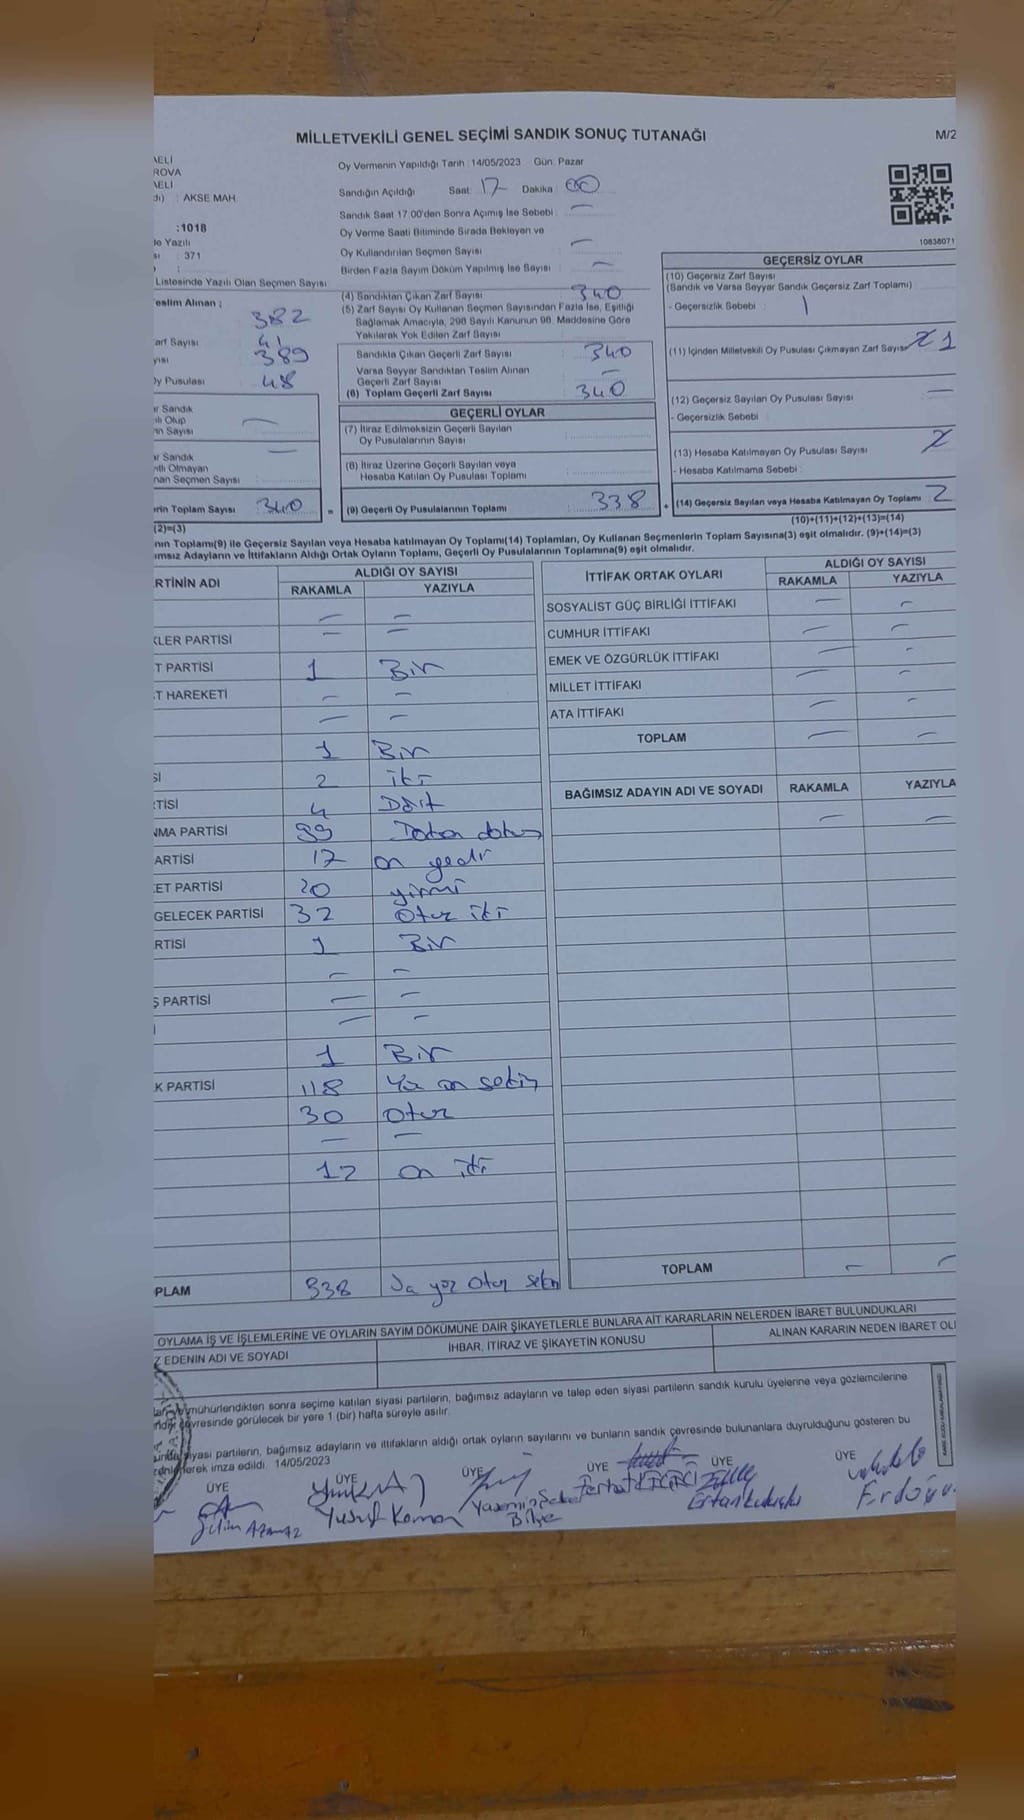 MİLLETVEKİLİ GENEL SEÇİMİ SANDIK SONUÇ TUTANAĞI
M/2
AELİ
ROVA
AELİ
dı) : AKSE MAH.
:1018
de Yazılı
sı : 371
Listesinde Yazılı Olan Seçmen Sayısı
Oy Vermenin Yapıldığı Tarih : 14/05/2023 Gün: Pazar
Sandığın Açıldığı Saat: 17 Dakika: 00
Sandık Saat 17.00'den Sonra Açımış İse Sebebi : —
Oy Verme Saati Bitiminde Sırada Bekleyen ve
Oy Kullandırılan Seçmen Sayısı —
Birden Fazla Sayım Döküm Yapılmış İse Sayısı —
10838071
eslim Alınan : 382
arf Sayısı 41
yısı 389
Oy Pusulası 48
ar Sandık
ılı Olup
nn Sayısı —
ar Sandık
ıtlı Olmayan
nan Seçmen Sayısı —
erin Toplam Sayısı : 340
(2)=(3)
(4) Sandıktan Çıkan Zarf Sayısı 340
(5) Zarf Sayısı Oy Kullanan Seçmen Sayısından Fazla İse, Eşitliği
Sağlamak Amacıyla, 298 Sayılı Kanunun 98. Maddesine Göre
Yakılarak Yok Edilen Zarf Sayısı
Sandıkta Çıkan Geçerli Zarf Sayısı 340
Varsa Seyyar Sandıktan Teslim Alınan
Geçerli Zarf Sayısı —
(6) Toplam Geçerli Zarf Sayısı 340
GEÇERLİ OYLAR
(7) İtiraz Edilmeksizin Geçerli Sayılan
Oy Pusulalarının Sayısı
(8) İtiraz Üzerine Geçerli Sayılan veya
Hesaba Katılan Oy Pusulası Toplamı
= (9) Geçerli Oy Pusulalarının Toplamı : 338
GEÇERSİZ OYLAR
(10) Geçersiz Zarf Sayısı
(Sandık ve Varsa Seyyar Sandık Geçersiz Zarf Toplamı)
- Geçersizlik Sebebi :
(11) İçinden Milletvekili Oy Pusulası Çıkmayan Zarf Sayısı 1
(12) Geçersiz Sayılan Oy Pusulası Sayısı —
- Geçersizlik Sebebi :
(13) Hesaba Katılmayan Oy Pusulası Sayısı
- Hesaba Katılmama Sebebi :
+ (14) Geçersiz Sayılan veya Hesaba Katılmayan Oy Toplamı 2
(10)+(11)+(12)+(13)=(14)
nın Toplamı(9) ile Geçersiz Sayılan veya Hesaba katılmayan Oy Toplamı(14) Toplamları, Oy Kullanan Seçmenlerin Toplam Sayısına(3) eşit olmalıdır. (9)+(14)=(3)
ımsız Adayların ve İttifakların Aldığı Ortak Oyların Toplamı, Geçerli Oy Pusulalarının Toplamına(9) eşit olmalıdır.
RTİNİN ADI
ALDIĞI OY SAYISI
RAKAMLA YAZIYLA
— —
KLER PARTİSİ — —
T PARTİSİ 1 Bir
T HAREKETİ — —
— —
1 Bir
Sİ 2 iki
RTİSİ 4 Dört
NMA PARTİSİ 99 Doksan dokuz
ARTİSİ 17 on yedi
ET PARTİSİ 20 yirmi
GELECEK PARTİSİ 32 Otuz iki
RTİSİ 1 Bir
— —
Ş PARTİSİ — —
— —
1 Bir
K PARTİSİ 118 Yüz on sekiz
30 Otuz
— —
12 on iki
PLAM 338 Üç yüz Otuz sekiz
İTTİFAK ORTAK OYLARI
ALDIĞI OY SAYISI
RAKAMLA YAZIYLA
SOSYALİST GÜÇ BİRLİĞİ İTTİFAKI — —
CUMHUR İTTİFAKI — —
EMEK VE ÖZGÜRLÜK İTTİFAKI — —
MİLLET İTTİFAKI — —
ATA İTTİFAKI — —
TOPLAM — —
BAĞIMSIZ ADAYIN ADI VE SOYADI RAKAMLA YAZIYLA
— —
TOPLAM — —
OYLAMA İŞ VE İŞLEMLERİNE VE OYLARIN SAYIM DÖKÜMÜNE DAİR ŞİKAYETLERLE BUNLARA AİT KARARLARIN NELERDEN İBARET BULUNDUKLARI
Z EDENİN ADI VE SOYADI
İHBAR, İTİRAZ VE ŞİKAYETİN KONUSU
ALINAN KARARIN NEDEN İBARET OL
mühürlendikten sonra seçime katılan siyasi partilerin, bağımsız adayların ve talep eden siyasi partilerin sandık kurulu üyelerine veya gözlemcilerine
çevresinde görülecek bir yere 1 (bir) hafta süreyle asılır.
siyasi partilerin, bağımsız adayların ve ittifakların aldığı ortak oyların sayılarını ve bunların sandık çevresinde bulunanlara duyrulduğunu gösteren bu
zenlenerek imza edildi. 14/05/2023
ÜYE ÜYE ÜYE ÜYE ÜYE ÜYE
Yusuf Kaman
Ferhat
Ertan